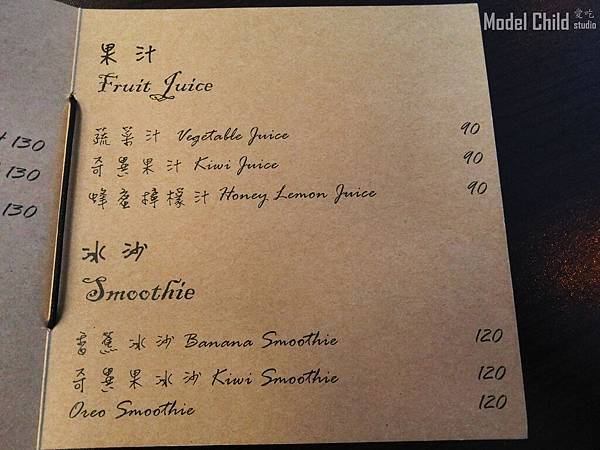 Model Child 愛吃 studio
果汁
Fruit Juice
130
130
130
蔬菜汁 Vegetable Juice 90
奇異果汁 Kiwi Juice 90
蜂蜜檸檬汁 Honey Lemon Juice 90
冰沙
Smoothie
香蕉冰沙 Banana Smoothie 120
奇異果冰沙 Kiwi Smoothie 120
Oreo Smoothie 120